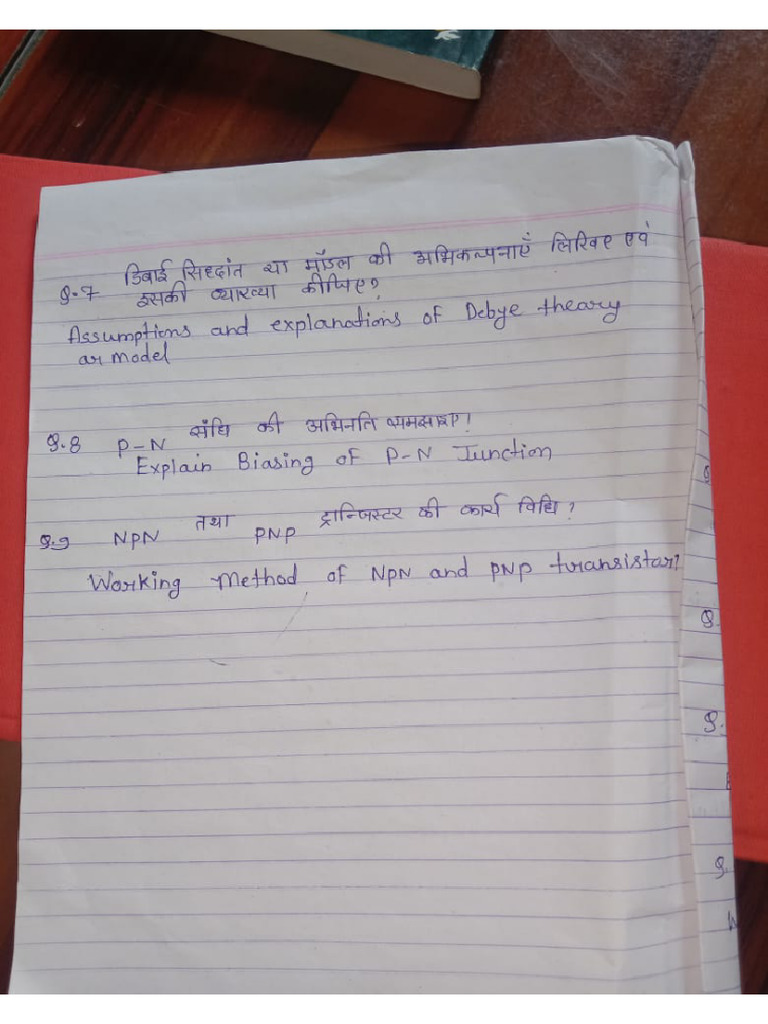 Q.7 डिबाई सिद्धांत या मॉडल की अभिकल्पनाएँ लिखिए एवं
इसकी व्याख्या कीजिए?
Assumptions and explanations of Debye theory
or model
Q.8 P-N संधि की अभिनति समझाइए!
Explain Biasing of P-N Junction
Q.9 NPN तथा PNP ट्रान्जिस्टर की कार्य विधि?
Working method of NPN and PNP transistor?
Q
Q.
Q.
Q.
W